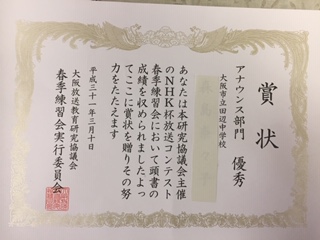 賞状
アナウンス部門 優秀
大阪市立田辺中学校
あなたは本研究協議会主催
のNHK杯放送コンテスト
春季練習会において頭書の
成績を収められましたよっ
てここに賞状を贈りその努
力をたたえます
平成三十一年三月十日
大阪放送教育研究協議会
春季練習会実行委員会